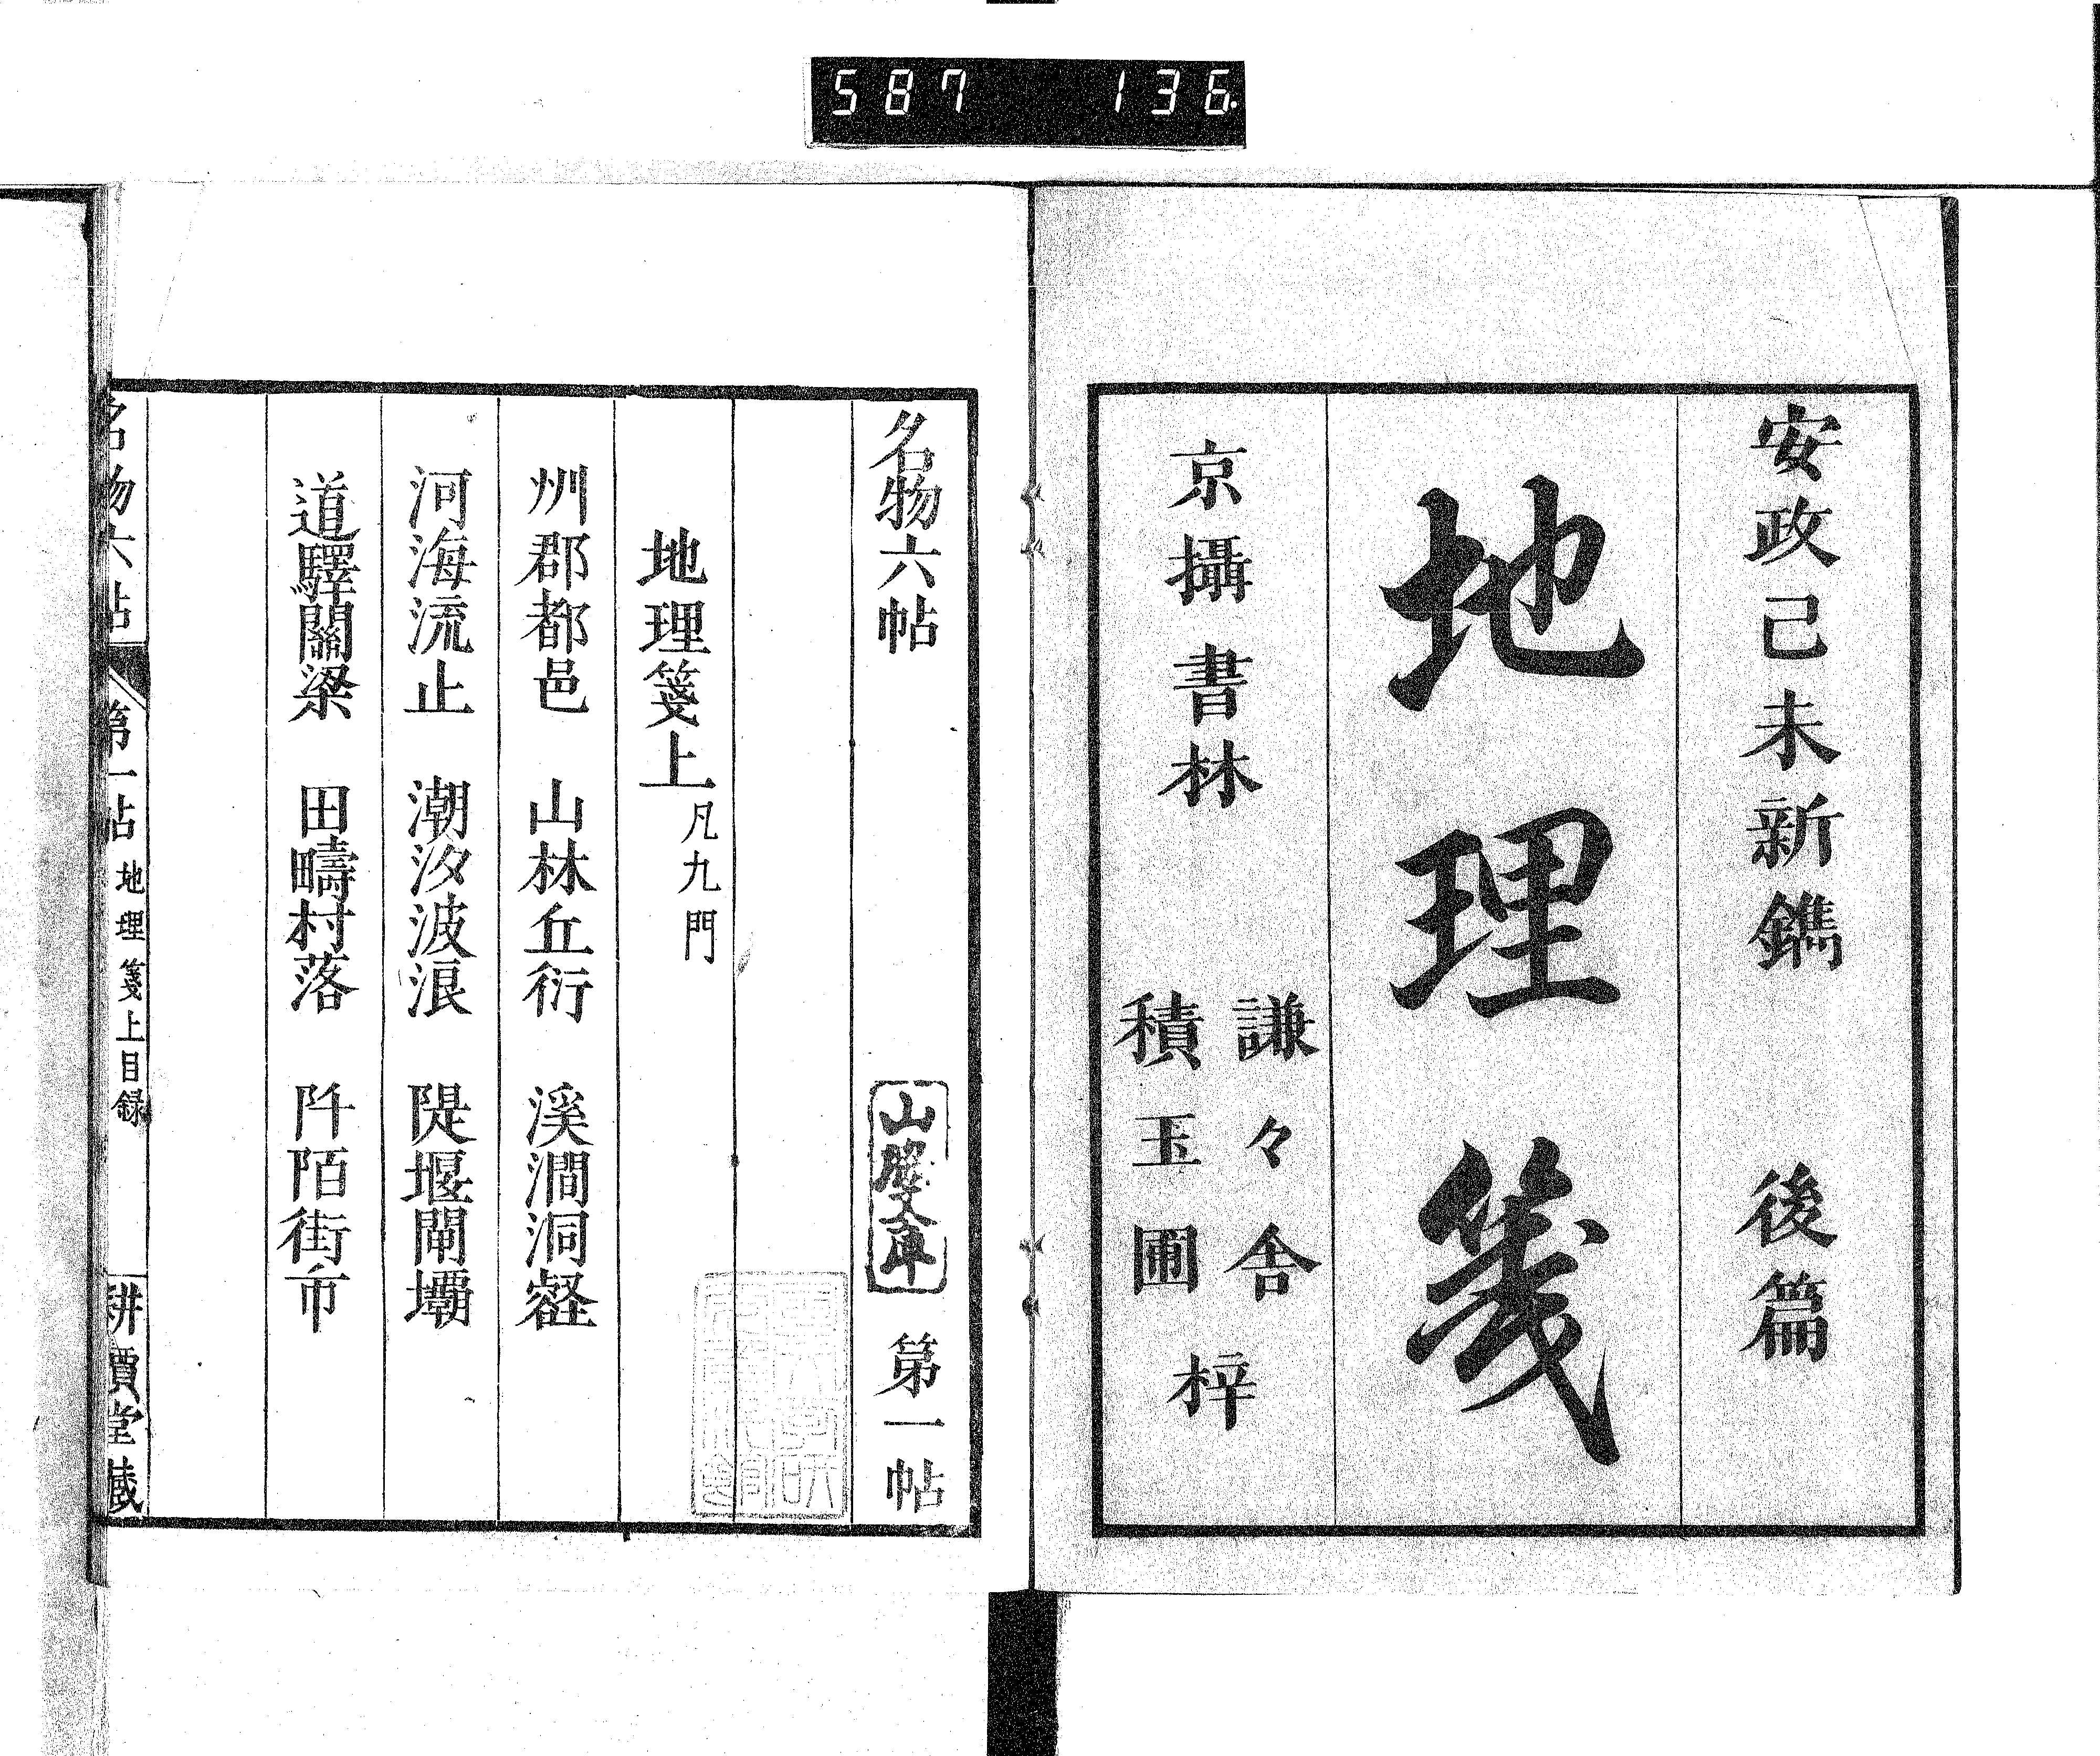 587 136.
安政己未新鐫 後篇
地理箋
京攝書林 謙々舍
積玉圃 梓
名物六帖 第一帖
地理箋上 凡九門
州郡都邑 山林丘衍 溪澗洞壑
河海流止 潮汐波浪 隄堰閘壩
道驛關梁 田疇村落 阡陌街市
名物六帖 第一帖 地理箋上目録